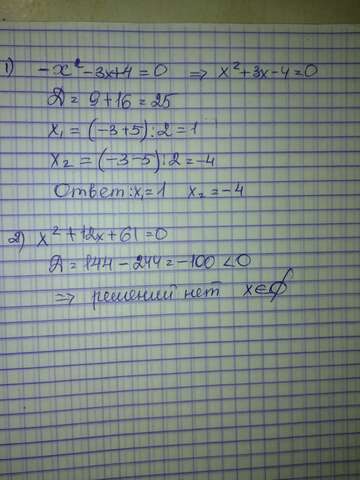 1) -x² - 3x + 4 = 0 ⇒ x² + 3x - 4 = 0
Д = 9 + 16 = 25
x₁ = (-3+5):2 = 1
x₂ = (-3-5):2 = -4
Ответ: x₁ = 1 x₂ = -4
2) x² + 12x + 61 = 0
Д = 144 - 244 = -100 < 0
⇒ решений нет x ∈ ∅